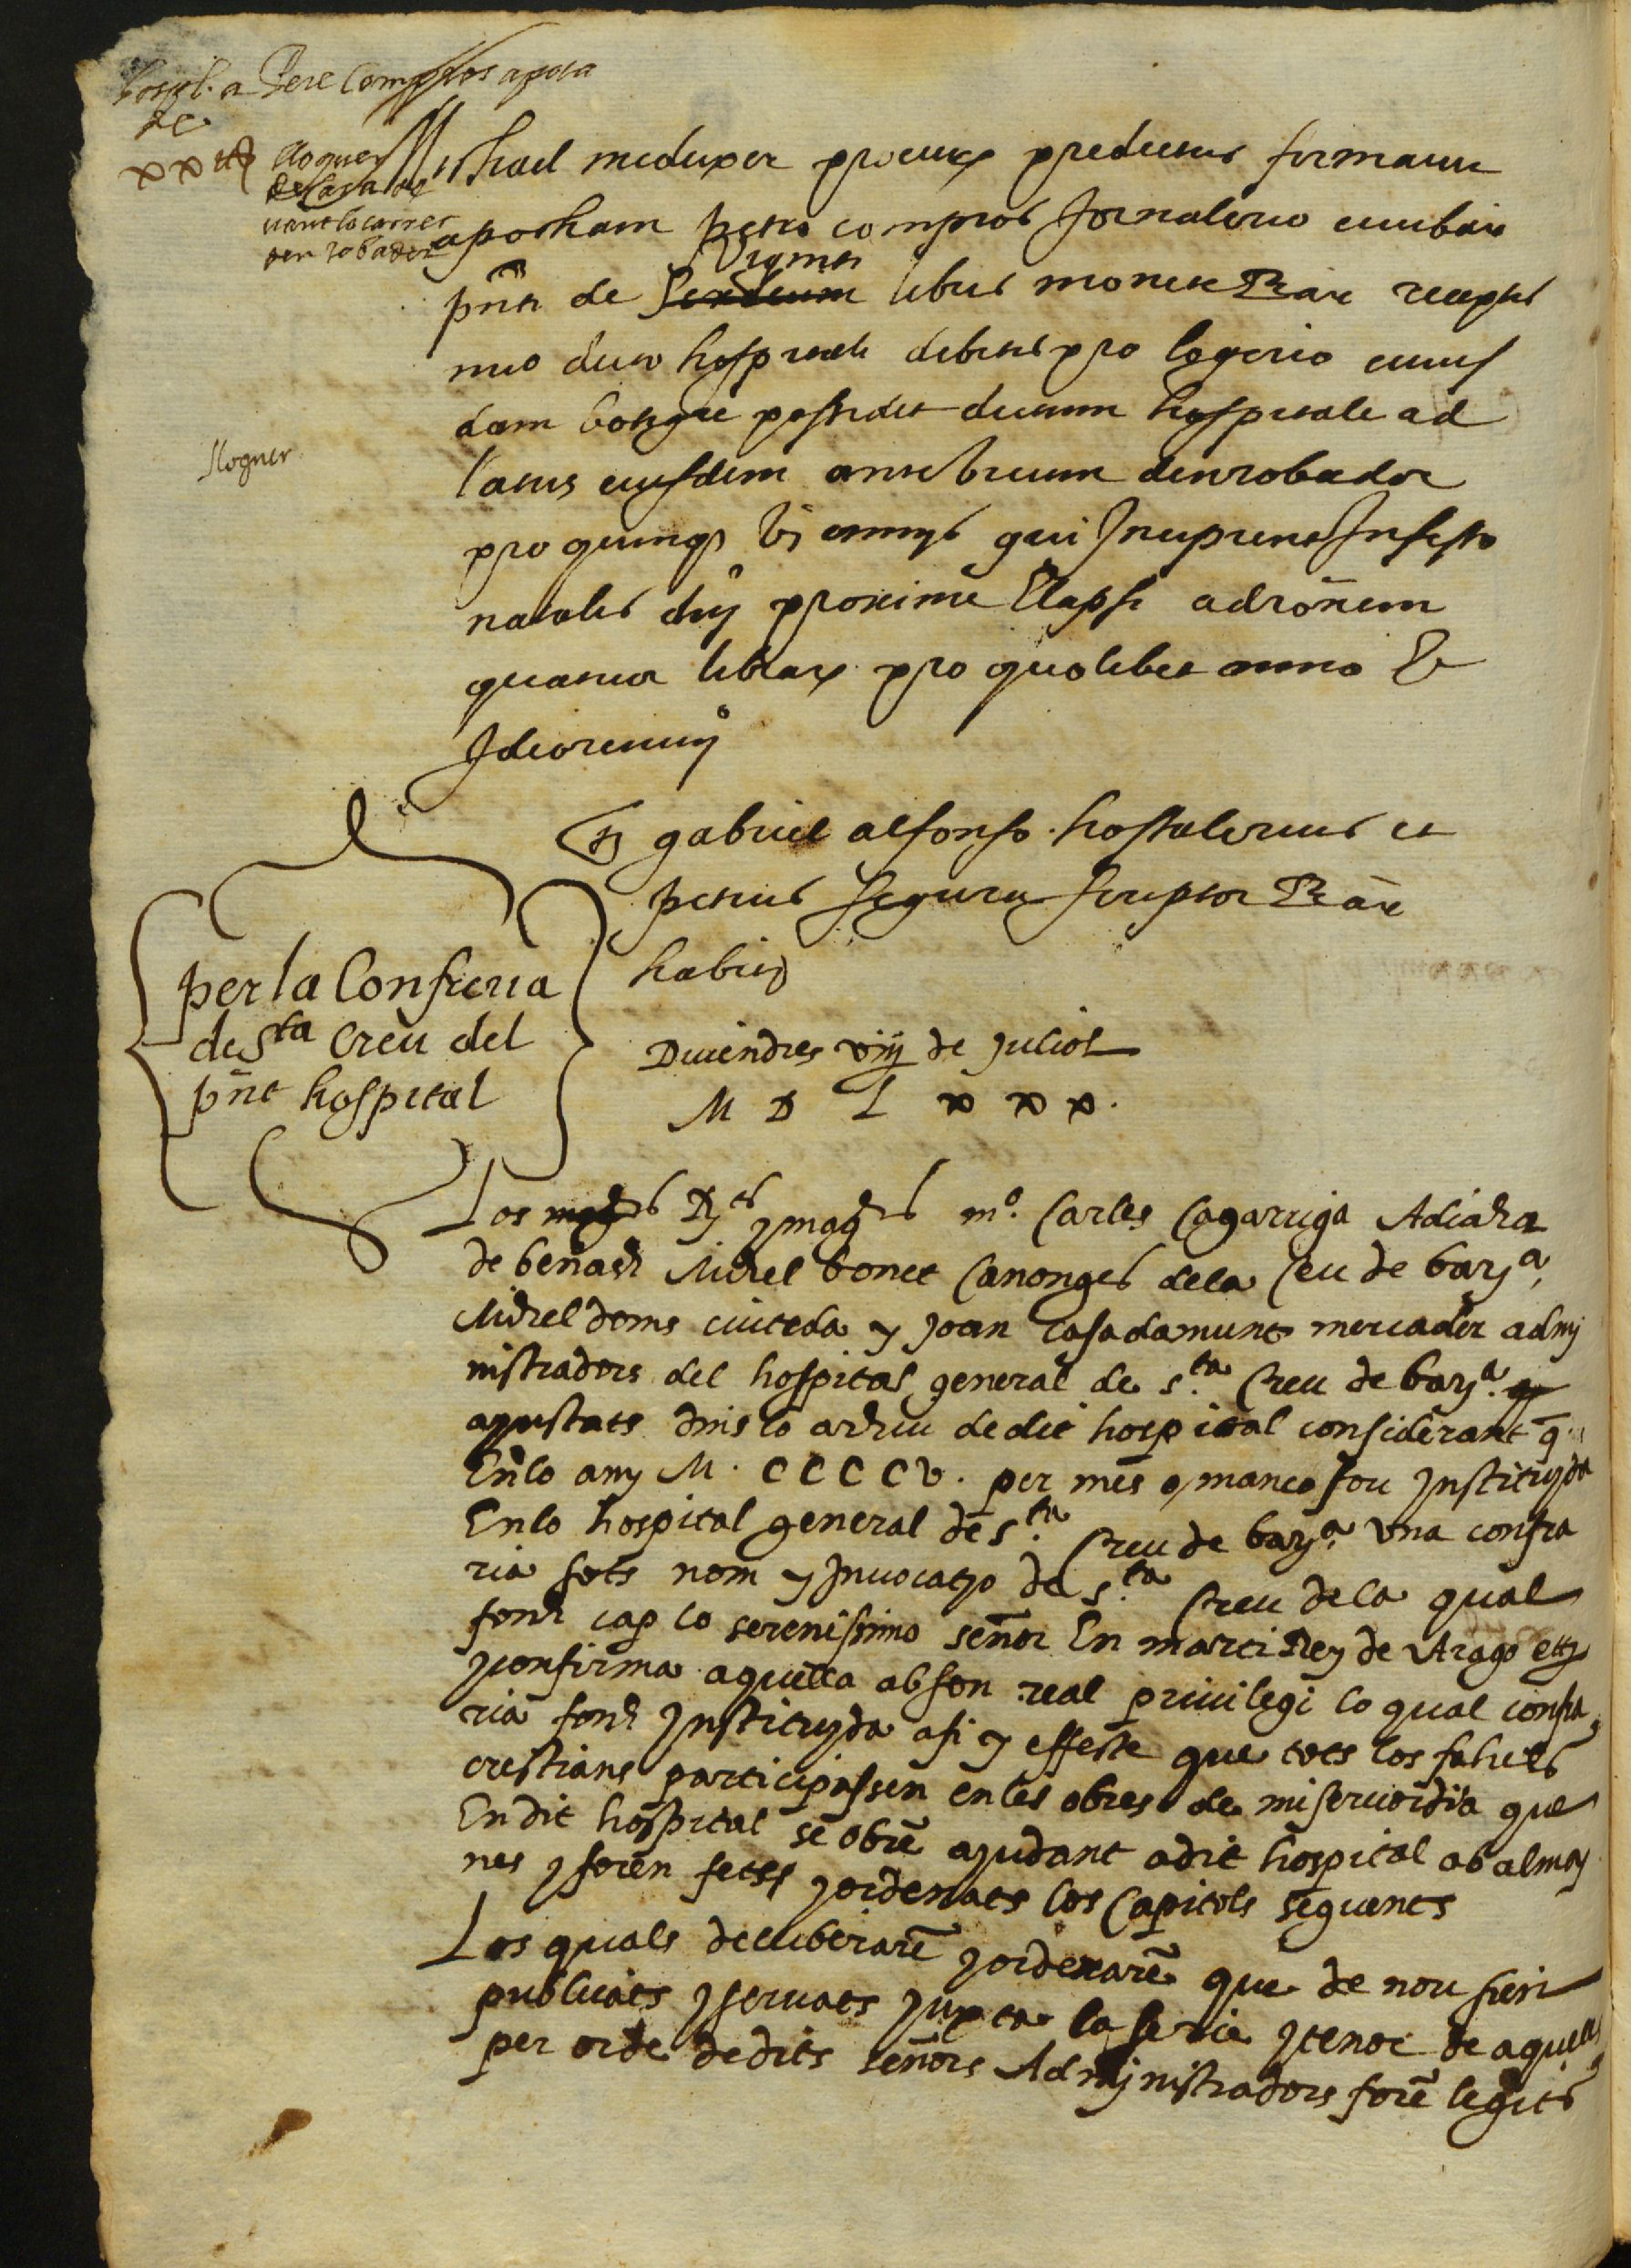 hospl. a Pere Compros apoca
de
xx ll
lloguer
de casa de
vant lo carrer
den robador
Michael meduxer procur predictus firmavit
apocham petro compros Jornalerio civibus
pnti de Sexdecim Viginti libris monete Bar receptis
dicto hospitali debitis pro logerio cuius
dam botigie possidet dictum hospitale ad
lloguer
latus eiusdem ante vicum den robador
pro quinq annys qui Inceperunt In festo
natalis dnj proxime Elapsi ad rõnem
quatuor librar pro quolibet anno Et
Ideo renunj
Ts gabriel alfonso hostalerius et
petrus Segura scriptor Bar
habit
per la Confreria
de Sta Creu del
pnt hospital
Divendres viij de Juliol
M D L x x x.
Los magchs Rts y magchs mo. Carles Çagarriga Adiacha
de benach Michel bonet Canonges dela Seu de barja,
Michel doms ciuteda y Joan Casadamunt mercader admj
nistradors del hospital general de s.ta Creu de barja. q
ajustats dins lo archiu de dit hospital considerant q̄
En lo any M. C C C C v. per mes o manco fou Instituyda
En lo hospital general de s.ta Creu de barja. una confra
ria sots nom y Invocatio de s.ta Creu dela qual
fonch cap lo serenissimo señor En marti Rey de Arago etc
y confirma aquella ab son real privilegi lo qual confra
ria fonch Instituyda a fi y effecte que tots los fahels
crestians participassen en les obres de misericordia que
En dit hospital se obrē ajudant a dit hospital ab almoy
nes y foren fetss y ordenats los Capitols seguents
Los quals deliberarē y ordenarē que de nou sien
publicats y servats Juxta la serie y tenor de aquells
per orde de dits señors Administradors forē legits